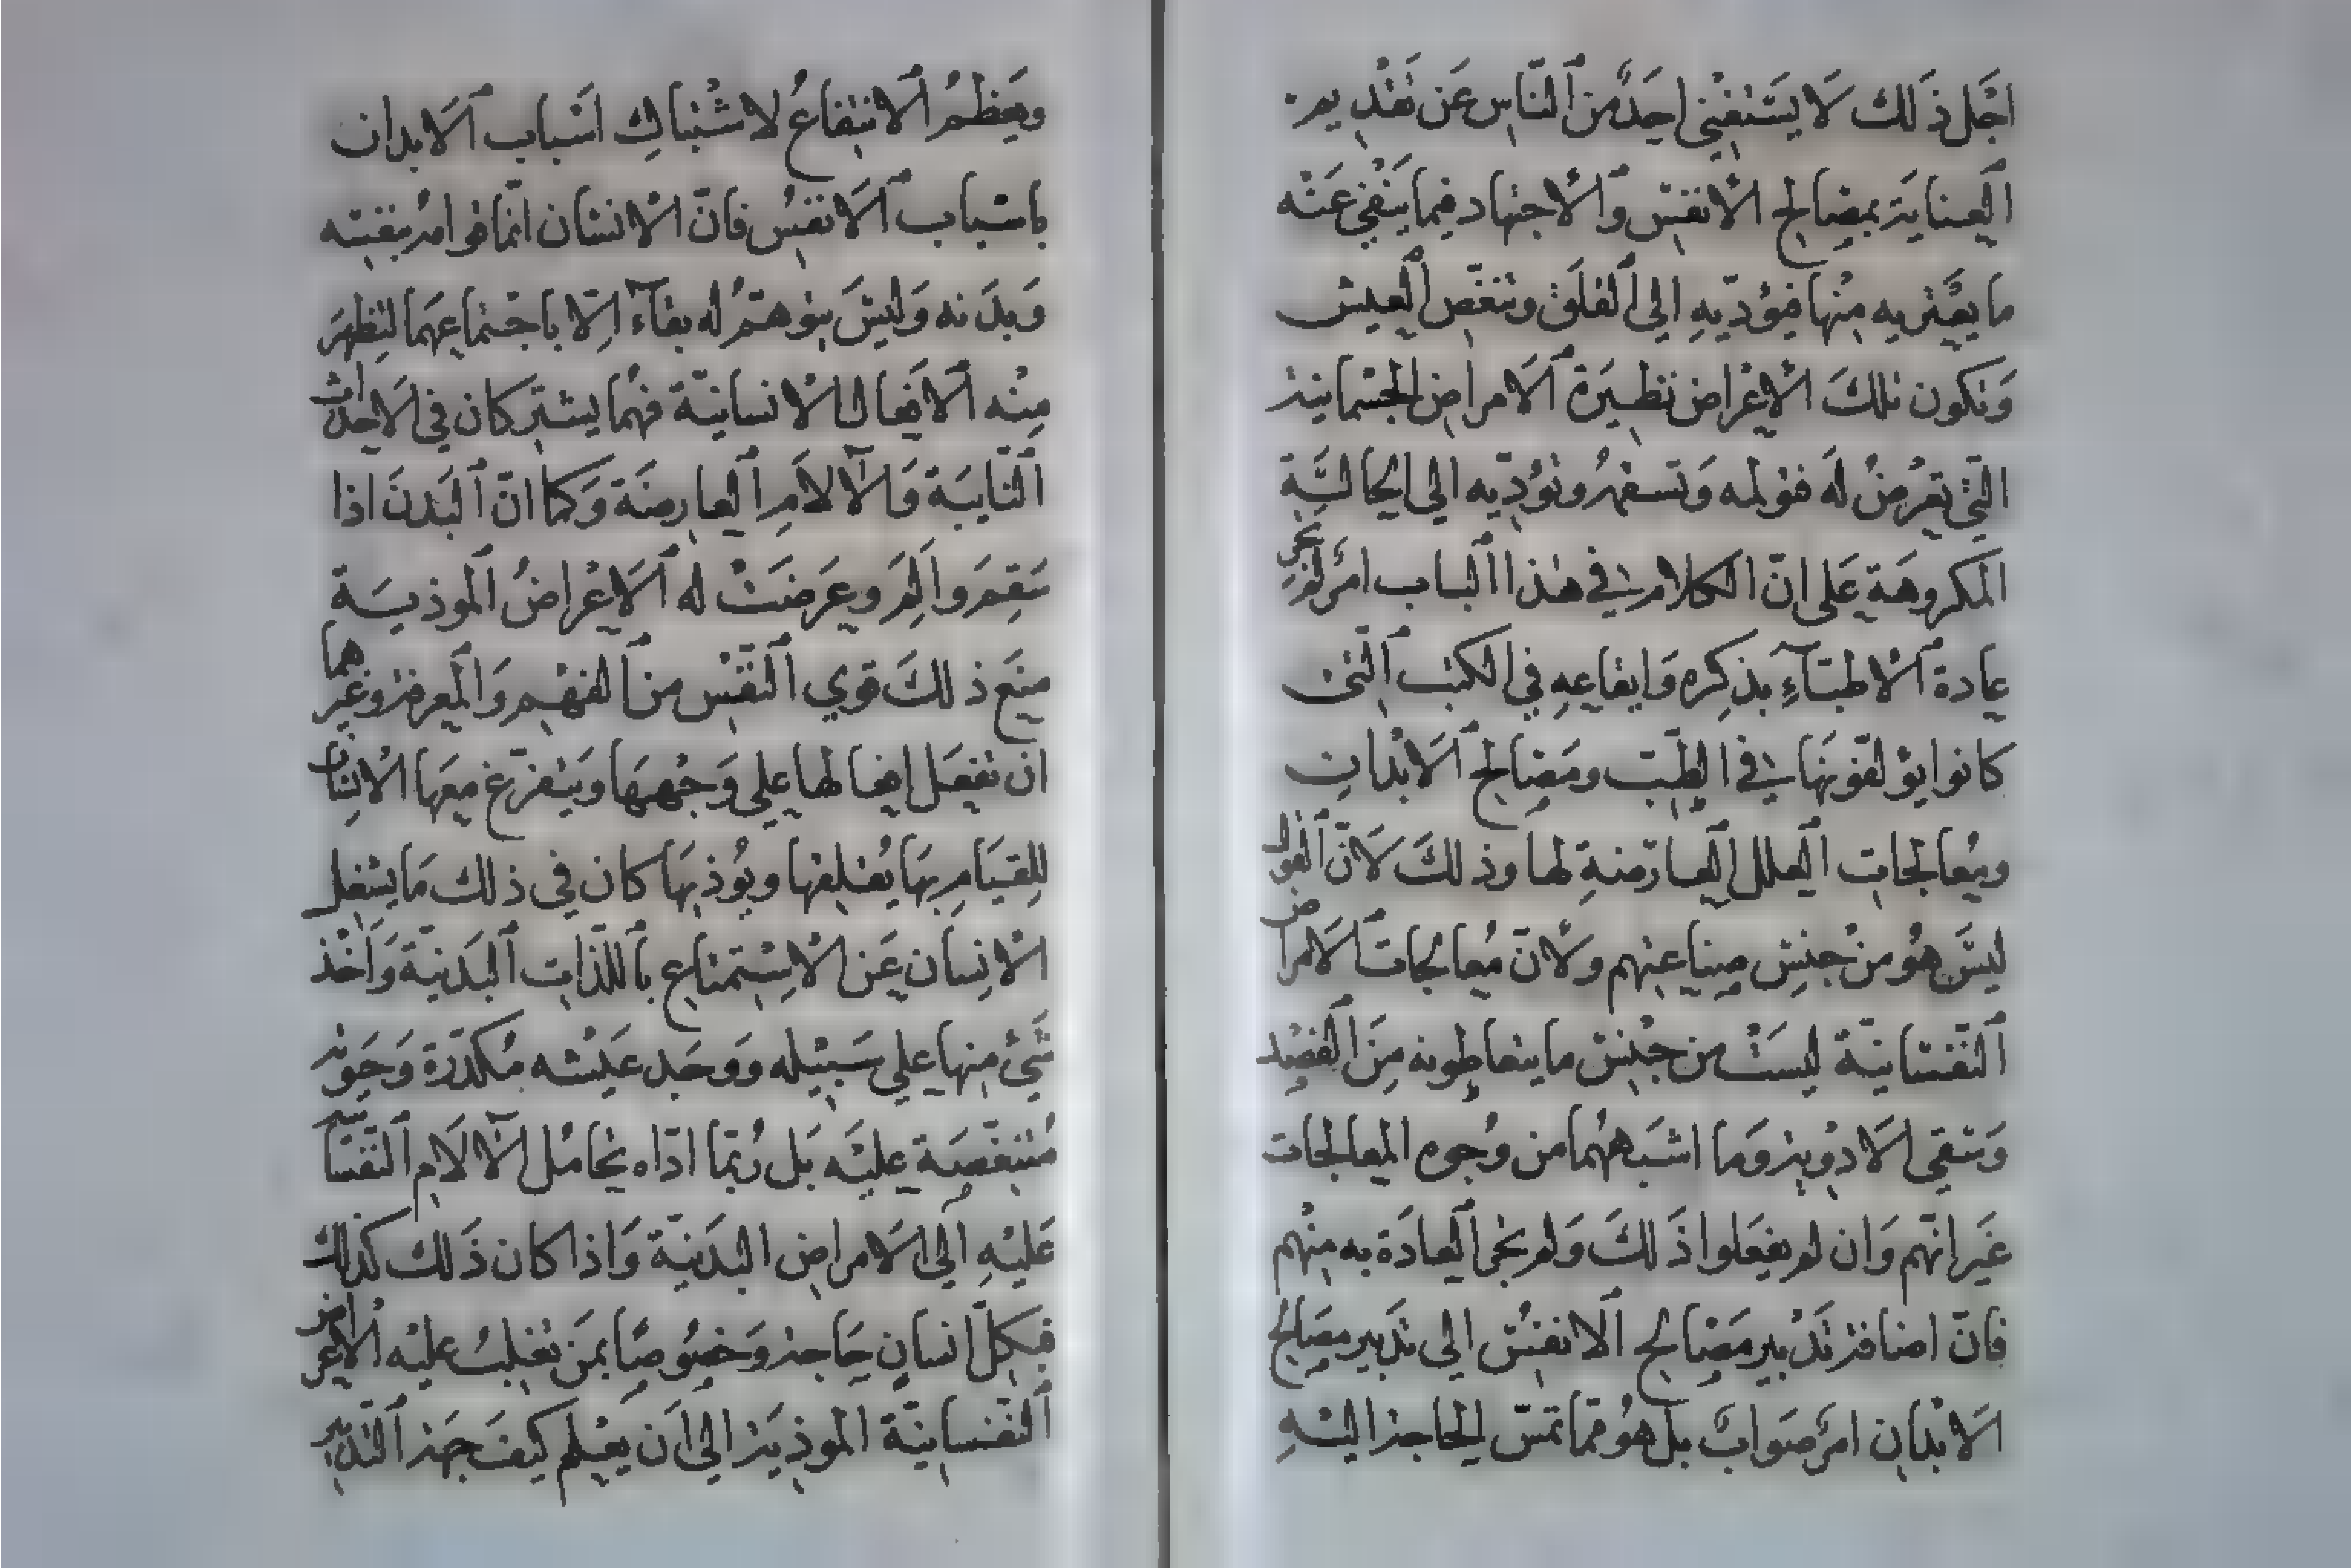 اجْل ذَلك لَا يَسْتغْنِي احَدٌ من ٱلنَّاسِ عَن تَقْدِيم
ٱلعِنايَة بمصَالح الْانفسِ وَٱلاجتهاد فيما يَنْفِي عَنْه
ما يعْتريه منْها فيؤدّيهِ الي ٱلقلَق وتنغّص ٱلعيش
وَتكون تلكَ الْاعْراض نظيرَة ٱلامراض الجسْمانية
الّتي تعْرُضُ لَه فتولمه وَتسهرُه وتؤدِّيه الي الحال التَّي
المكروهَة عَلي انّ الكلام في هذا ٱلباب امرٌ لم تجرِ
عادة ٱلاطبّآءِ بذِكره وَايقاعِهِ في الكتب ٱلّتي
كانوا يؤلفّونهَا في الطِّبّ ومَصَالح ٱلابْدان
ومُعالجات ٱلعلل ٱلعارضةِ لها وذلكَ لانّ ٱلقول
ليسَ هُو منْ جنسِ صناعتهم ولانّ مُعالجات ٱلامراض
ٱلنّفسَانيّة ليسَتْ من جنْسِ ما يتعاطونه مِنَ ٱلفصْد
وَسَقي الادْوية وَما اشبَههُما من وُجوه المعالجات
غَير انّهم وَان لم يفعَلوا ذَلكَ وَلم تجرِ ٱلعادَة به منْهم
فانّ اضافة تَدْبير مصَالح ٱلانفُس الي تدْبير مصَالح
الابْدان امرٌ صَوابٌ بل هُو ممّا تمسّ الحاجة اليْهِ
ويعَظمُ ٱلانتفاعُ لاشْتباكِ اسْباب ٱلابدان
باسْباب ٱلانفسُ فانّ الانسَان انّما قوامُه بنفسه
وَبدَنه وَليْسَ يتوهّمُ له بقآءٌ اِلّا باجْتماعهمَا لتظهرَ
منْه ٱلافعال الْانسانيّة فهُما يشتركان في الاحداث
ٱلنّايبَة وَٱلآلامِ ٱلعارضَة وَكما انّ ٱلبَدنَ اذا
سَقِمَ وَالِمَ وعَرَضَتْ له ٱلاعْراضُ ٱلموذيَة
منَع ذلكَ قوي ٱلنّفْس من ٱلفهْم وَٱلمعرفة وغيرهما
ان تفعَل افعالها علي وَجْههَا ويَتفرّغ معَها الْانسان
للقيَامِ بهَا يُقلقها ويُوذيهَا كان في ذلك مَا يشغل
الْانسان عَن الْاسْتمتاع بٱللّذات ٱلبدَنيّة وَاخْذ
شَيْءٍ منها علي سَبيْله ووَجَد عَيْشه مُكدّرة وَحَيٰوته
مُتنغّصة عليْه بَل رُبّما ادّاه تحامُل ٱلآلَام ٱلنّفسَانية
عَليْهِ الَي الامراض ٱلبدَنيّة وَاذا كان ذَلك كذلك
فبكلّ انسانٍ حَاجة وَخصُوصًا بمَن تغلبُ عليْه الاعراض
ٱلنّفسانيّة الموذيَة الي اَن يعْلم كيفَ جهَة ٱلتّدبير